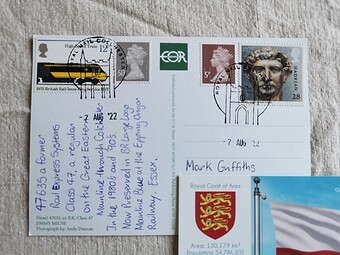 High-Speed Train
12
1975 British Rail Inter
EOR
5P
HADRIAN
28
ROYAL MAIL COLCHESTER
7 AUG 22
7 AUG 22
47635 a former
Rail Express Systems
Class 47, a regular
on the Great Eastern
Mainline through Colchester
In the 1980's and 90's.
Now Preserved in BR Large Logo
Mainline Blue at the Epping Ongar
Railway, Essex.
Diesel 47635, ex B.R. Class 47
JIMMY MILNE
Photograph by Andy Duncan
Mark Griffiths
Royal Coat of Arms
Area: 130,279 km²
Population: 54,786,300